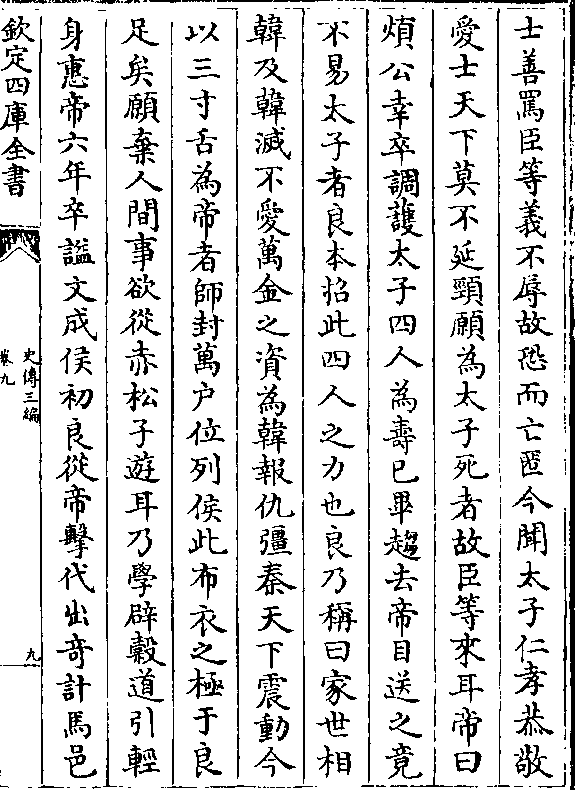 士善罵臣等義不辱故恐而亡匿今聞太子仁孝恭敬
愛士天下莫不延頸願為太子死者故臣等來耳帝曰
煩公幸卒調護太子四人為壽已畢趨去帝目送之竟
不易太子者良本招此四人之力也良乃稱曰家世相
韓及韓滅不愛萬金之資為韓報仇彊秦天下震動今
以三寸舌為帝者師封萬户位列侯此布衣之極于良
足矣願棄人間事欲從赤松子遊耳乃學辟穀道引輕
身惠帝六年卒諡文成侯初良從帝擊代出奇計馬邑
欽定四庫全書
史傳三編
卷九
九